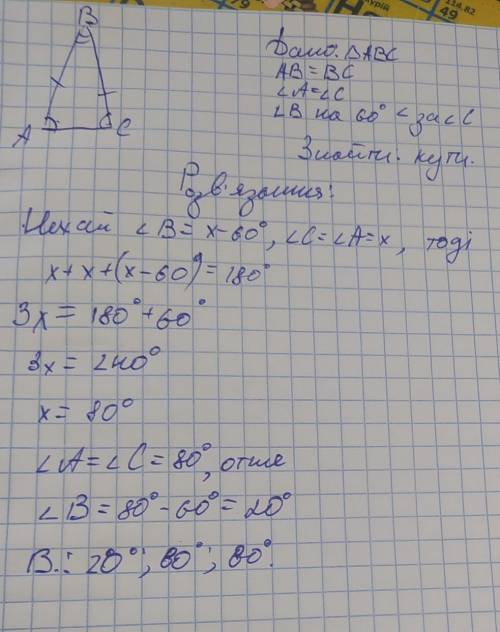 114.82
49
49
B
A
C
Дано: ΔABC
AB = BC
∠A=∠C
∠B на 60° < за ∠C
Знайти: кути.
Розв'язання:
Нехай ∠B = x-60°, ∠C=∠A=x, тоді
x+x+(x-60°)=180°
3x = 180°+60°
3x = 240°
x = 80°
∠A=∠C=80°, отже
∠B = 80°-60° = 20°
В.: 20°; 80°; 80°.